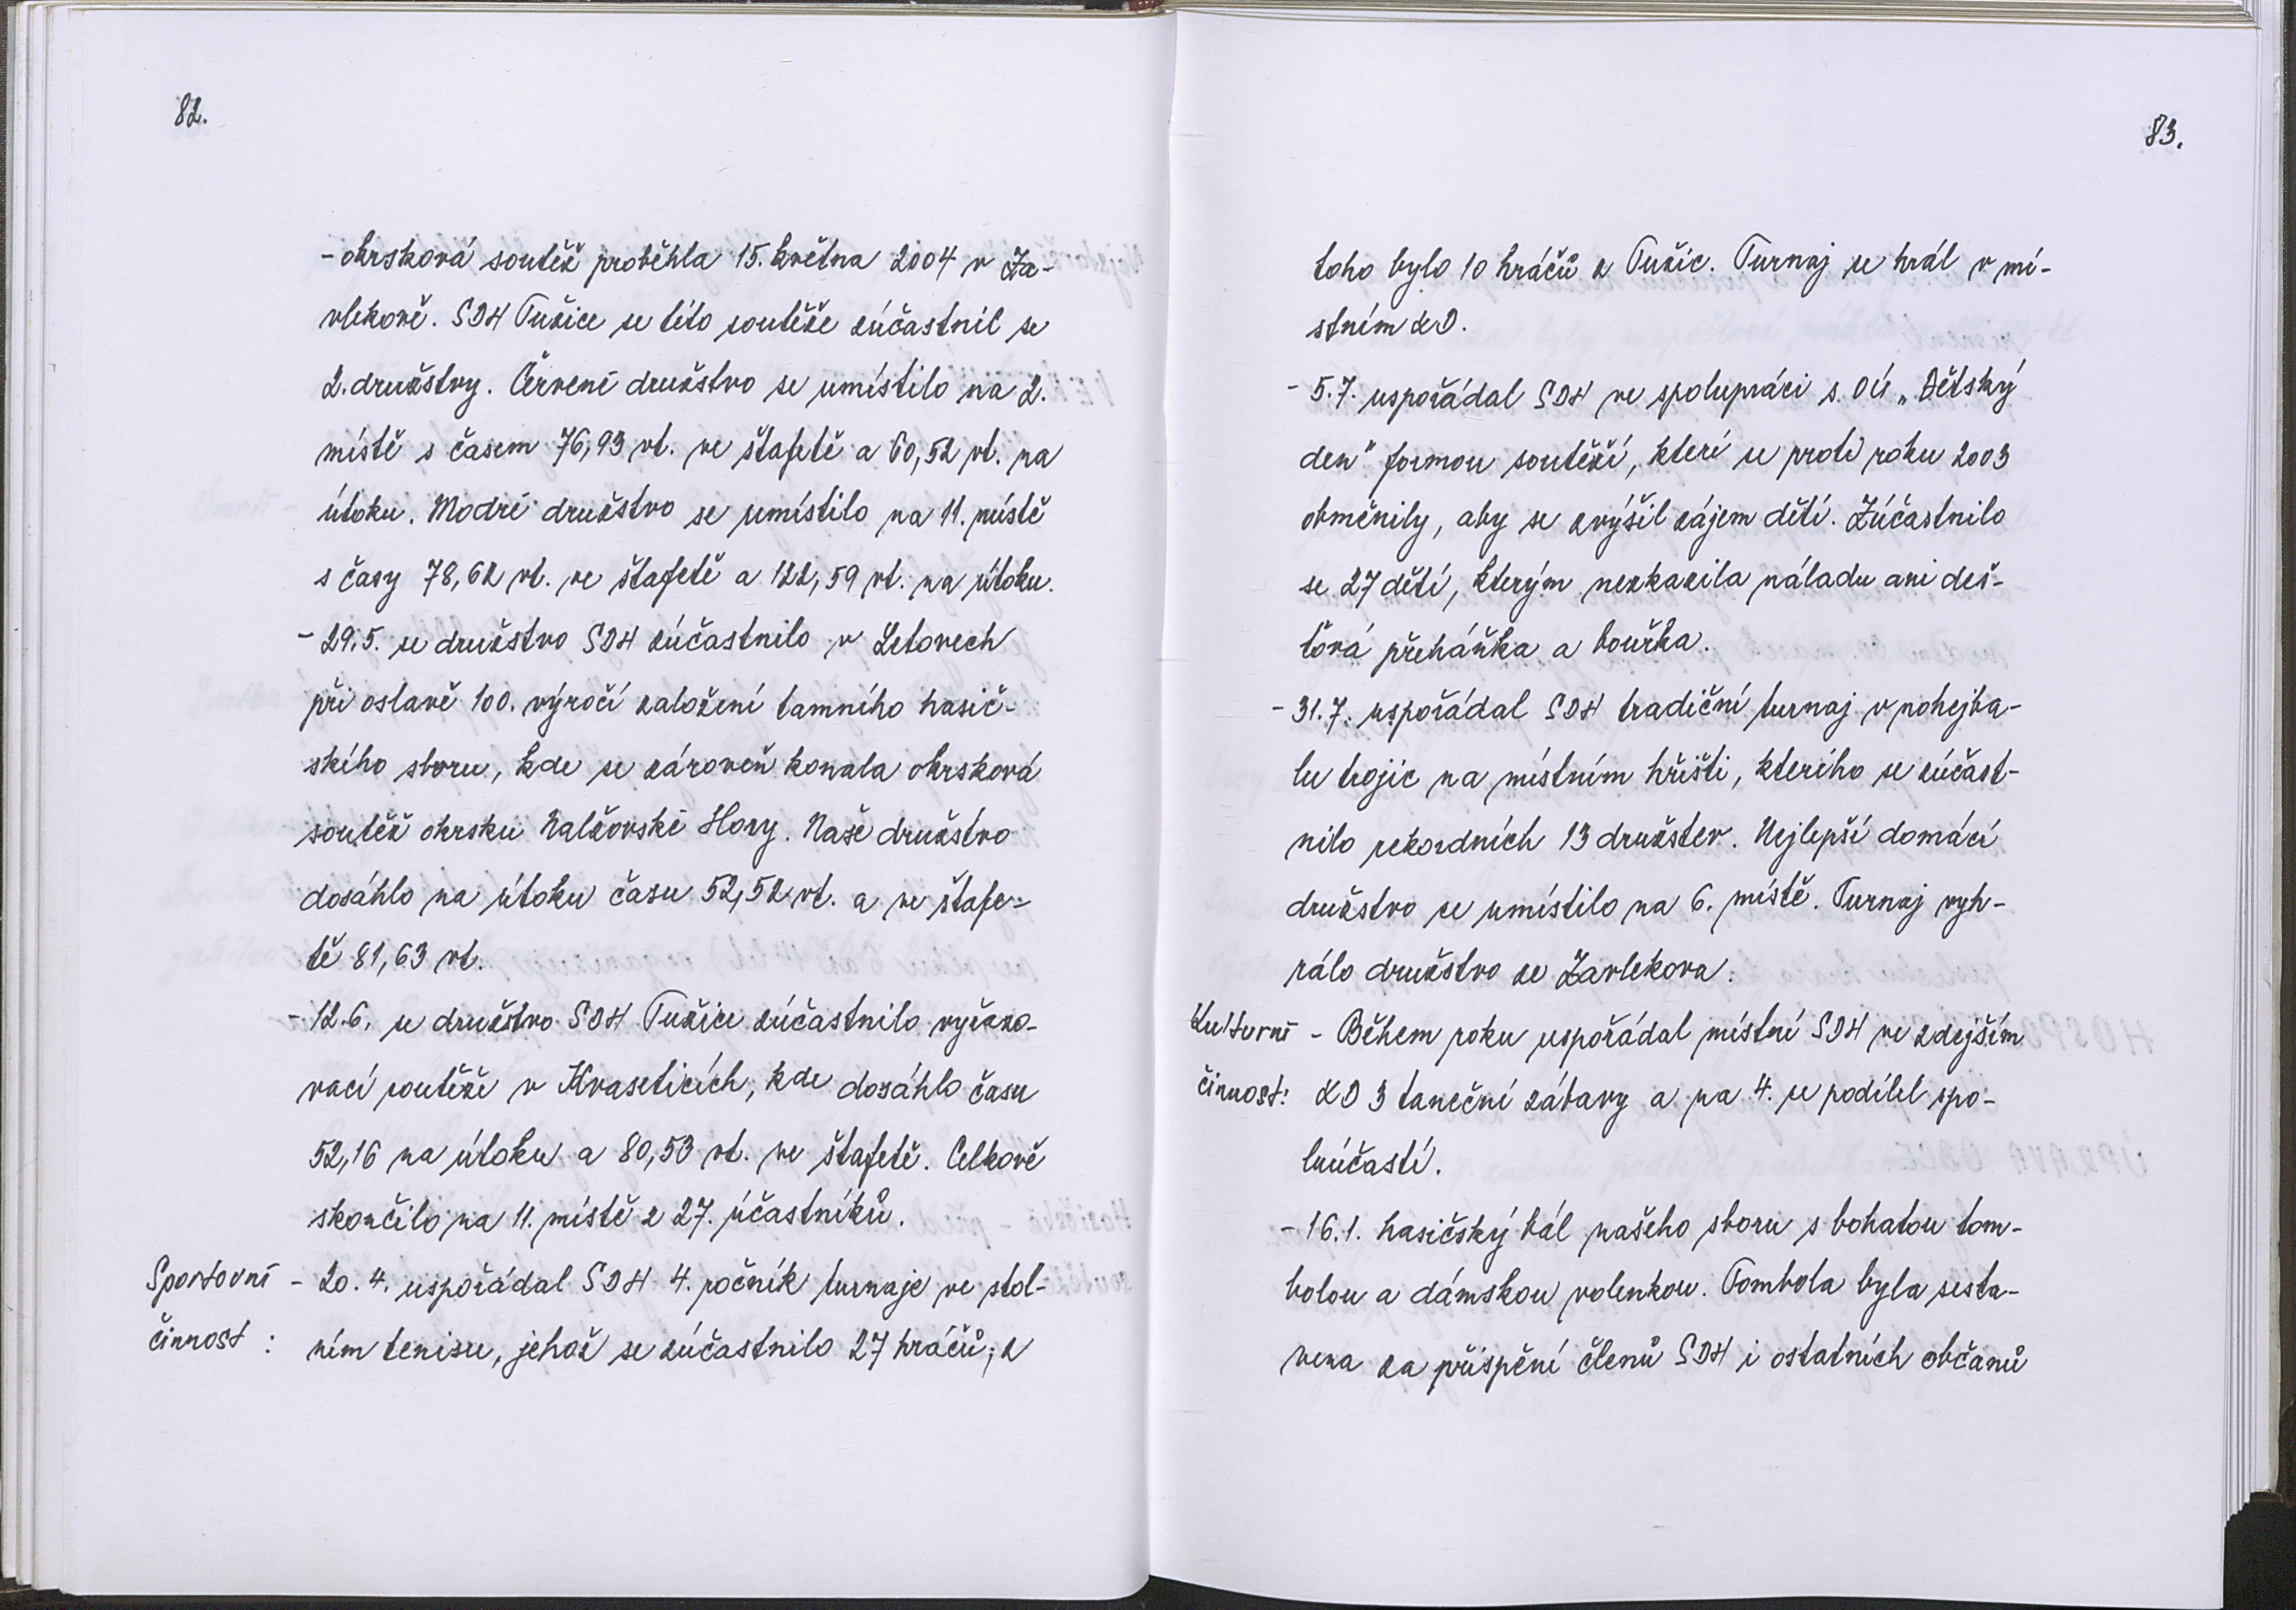 82.
- okrsková soutěž proběhla 15. května 2004 v Za-
vlekově. SDH Tužice se této soutěže zúčastnil se
2. družstvy. Červené družstvo se umístilo na 2.
místě s časem 76,93 vt. ve štafetě a 60,52 vt. na
útoku. Modré družstvo se umístilo na 11. místě
s časy 78,62 vt. ve štafetě a 122,59 vt. na útoku.
- 29.5. se družstvo SDH zúčastnilo v Letovech
při oslavě 100. výročí založení tamního hasič-
ského sboru, kde se zároveň konala okrsková
soutěž okrsku Nalžovské Hory. Naše družstvo
dosáhlo na útoku času 52,52 vt. a ve štafe-
tě 81,63 vt.
- 12.6. se družstvo SDH Tužice zúčastnilo vyřazo-
vací soutěže v Kvaseticích, kde dosáhlo času
52,16 na útoku a 80,53 vt. ve štafetě. Celkově
skončilo na 11. místě z 27. účastníků.
Sportovní - 20.4. uspořádal SDH 4. ročník turnaje ve stol-
činnost : ním tenisu, jehož se zúčastnilo 27 hráčů, z
83.
toho bylo 10 hráčů z Tužic. Turnaj se hrál v mí-
stním KD.
- 5.7. uspořádal SDH ve spolupráci s OÚ „Dětský
den" formou soutěží, které se proti roku 2003
obměnily, aby se zvýšil zájem dětí. Zúčastnilo
se 27 dětí, kterým nezkazila náladu ani deš-
ťová přeháňka a bouřka.
- 31.7. uspořádal SDH tradiční turnaj v nohejba-
lu trojic na místním hřišti, kterého se zúčast-
nilo rekordních 13 družstev. Nejlepší domácí
družstvo se umístilo na 6. místě. Turnaj vyh-
rálo družstvo ze Zavlekova.
Kulturní - Během roku uspořádal místní SDH ve zdejším
činnost: KD 3 taneční zábavy a na 4. se podílel spo-
luúčastí.
- 16.1. hasičský bál našeho sboru s bohatou tom-
bolou a dámskou volenkou. Tombola byla sesta-
vena za přispění členů SDH i ostatních občanů